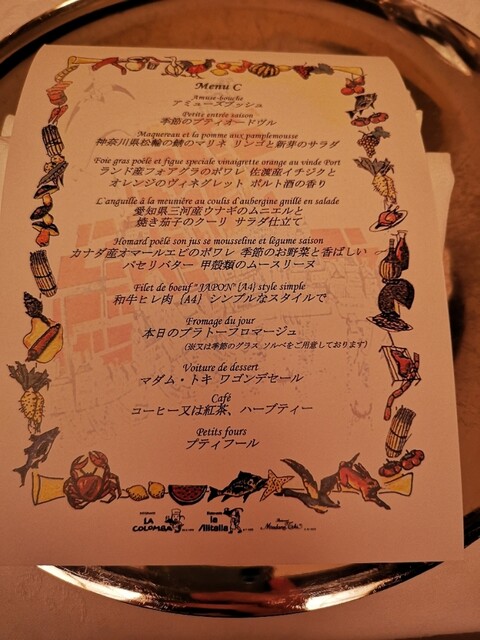 Menu C
Amuse-bouche
アミューズブッシュ
Petite entrée saison
季節のプティオードヴル
Maquereau et la pomme aux pamplemousse
神奈川県松輪の鯖のマリネ リンゴと新芽のサラダ
Foie gras poêlé et figue speciale vinaigrette orange au vinde Port
ランド産フォアグラのポワレ 佐渡産イチジクと
オレンジのヴィネグレット ポルト酒の香り
L'anguille à la meunière au coulia d'aubergine gnillé en salade
愛知県三河産ウナギのムニエルと
焼き茄子のクーリ サラダ仕立て
Homard poêlé son jus se mousseline et lègume saison
カナダ産オマールエビのポワレ 季節のお野菜と香ばしい
パセリバター 甲殻類のムースリーヌ
Filet de boeuf "JAPON" {A4} style simple
和牛ヒレ肉 {A4} シンプルなスタイルで
Fromage du jour
本日のプラトーフロマージュ
(※又は季節のグラス ソルベをご用意しております)
Voiture de dessert
マダム・トキ ワゴンデセール
Café
コーヒー又は紅茶、ハーブティー
Petits fours
プティフール
LA COLOMBA
la Alitalia
Madame Toki